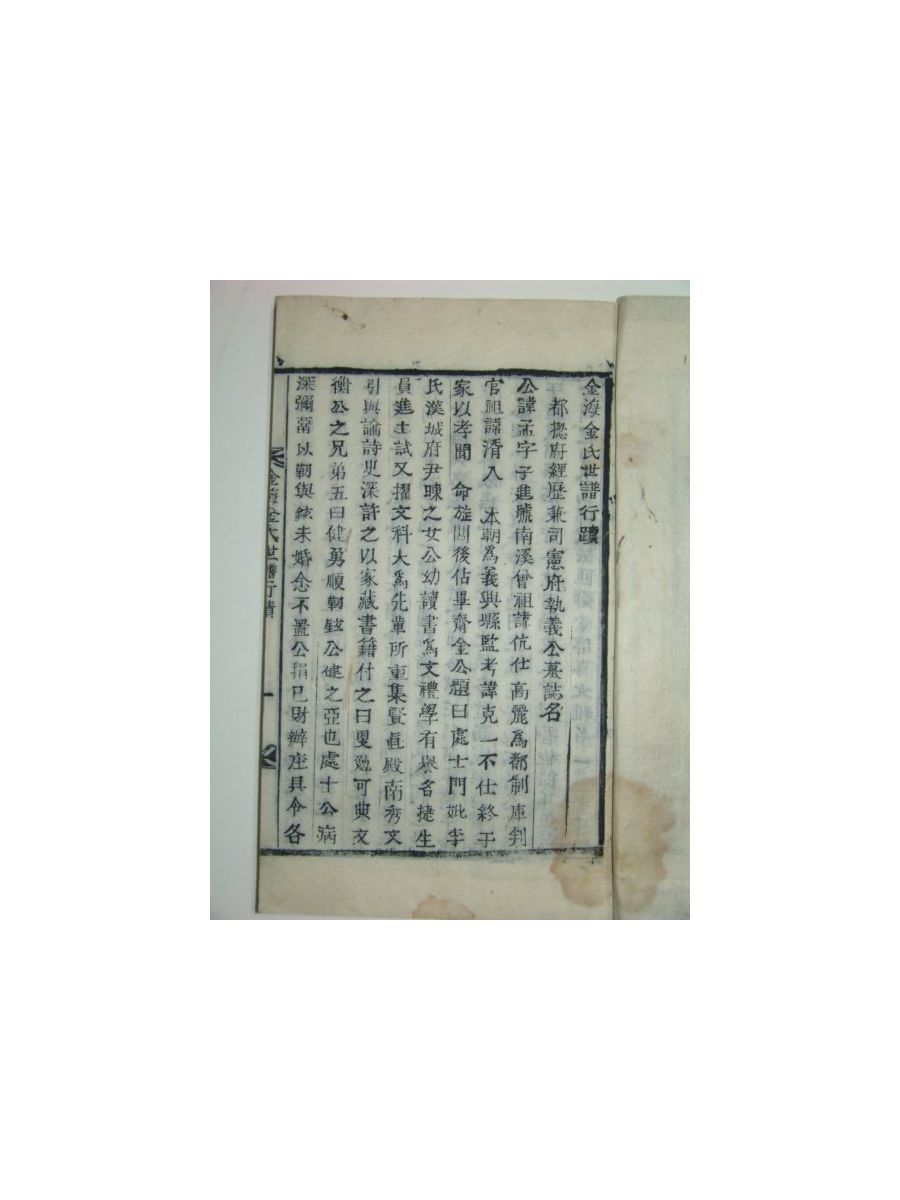 金海金氏世譜行蹟
都摠府經歷兼司憲府執義公墓誌名
公諱孟字子進號南溪曾祖諱伉仕高麗爲都制庫判
官祖諱湑入 本朝爲義興縣監考諱克一不仕終于
家以孝聞 命旌閭後佔畢齋金公題曰處士門妣李
氏漢城府尹暕之女公幼讀書爲文禮學有譽名捷生
員進士試又擢文科大爲先輩所重集賢眞殿南秀文
引與論詩史深許之以家藏書籍付之曰更勉可典文
衡公之兄弟五曰健勇順靭鉉公健之亞也處士公病
深彌留以靭與鉉未婚念不置公捐己財辦座具令各
金海金氏世譜行蹟 一